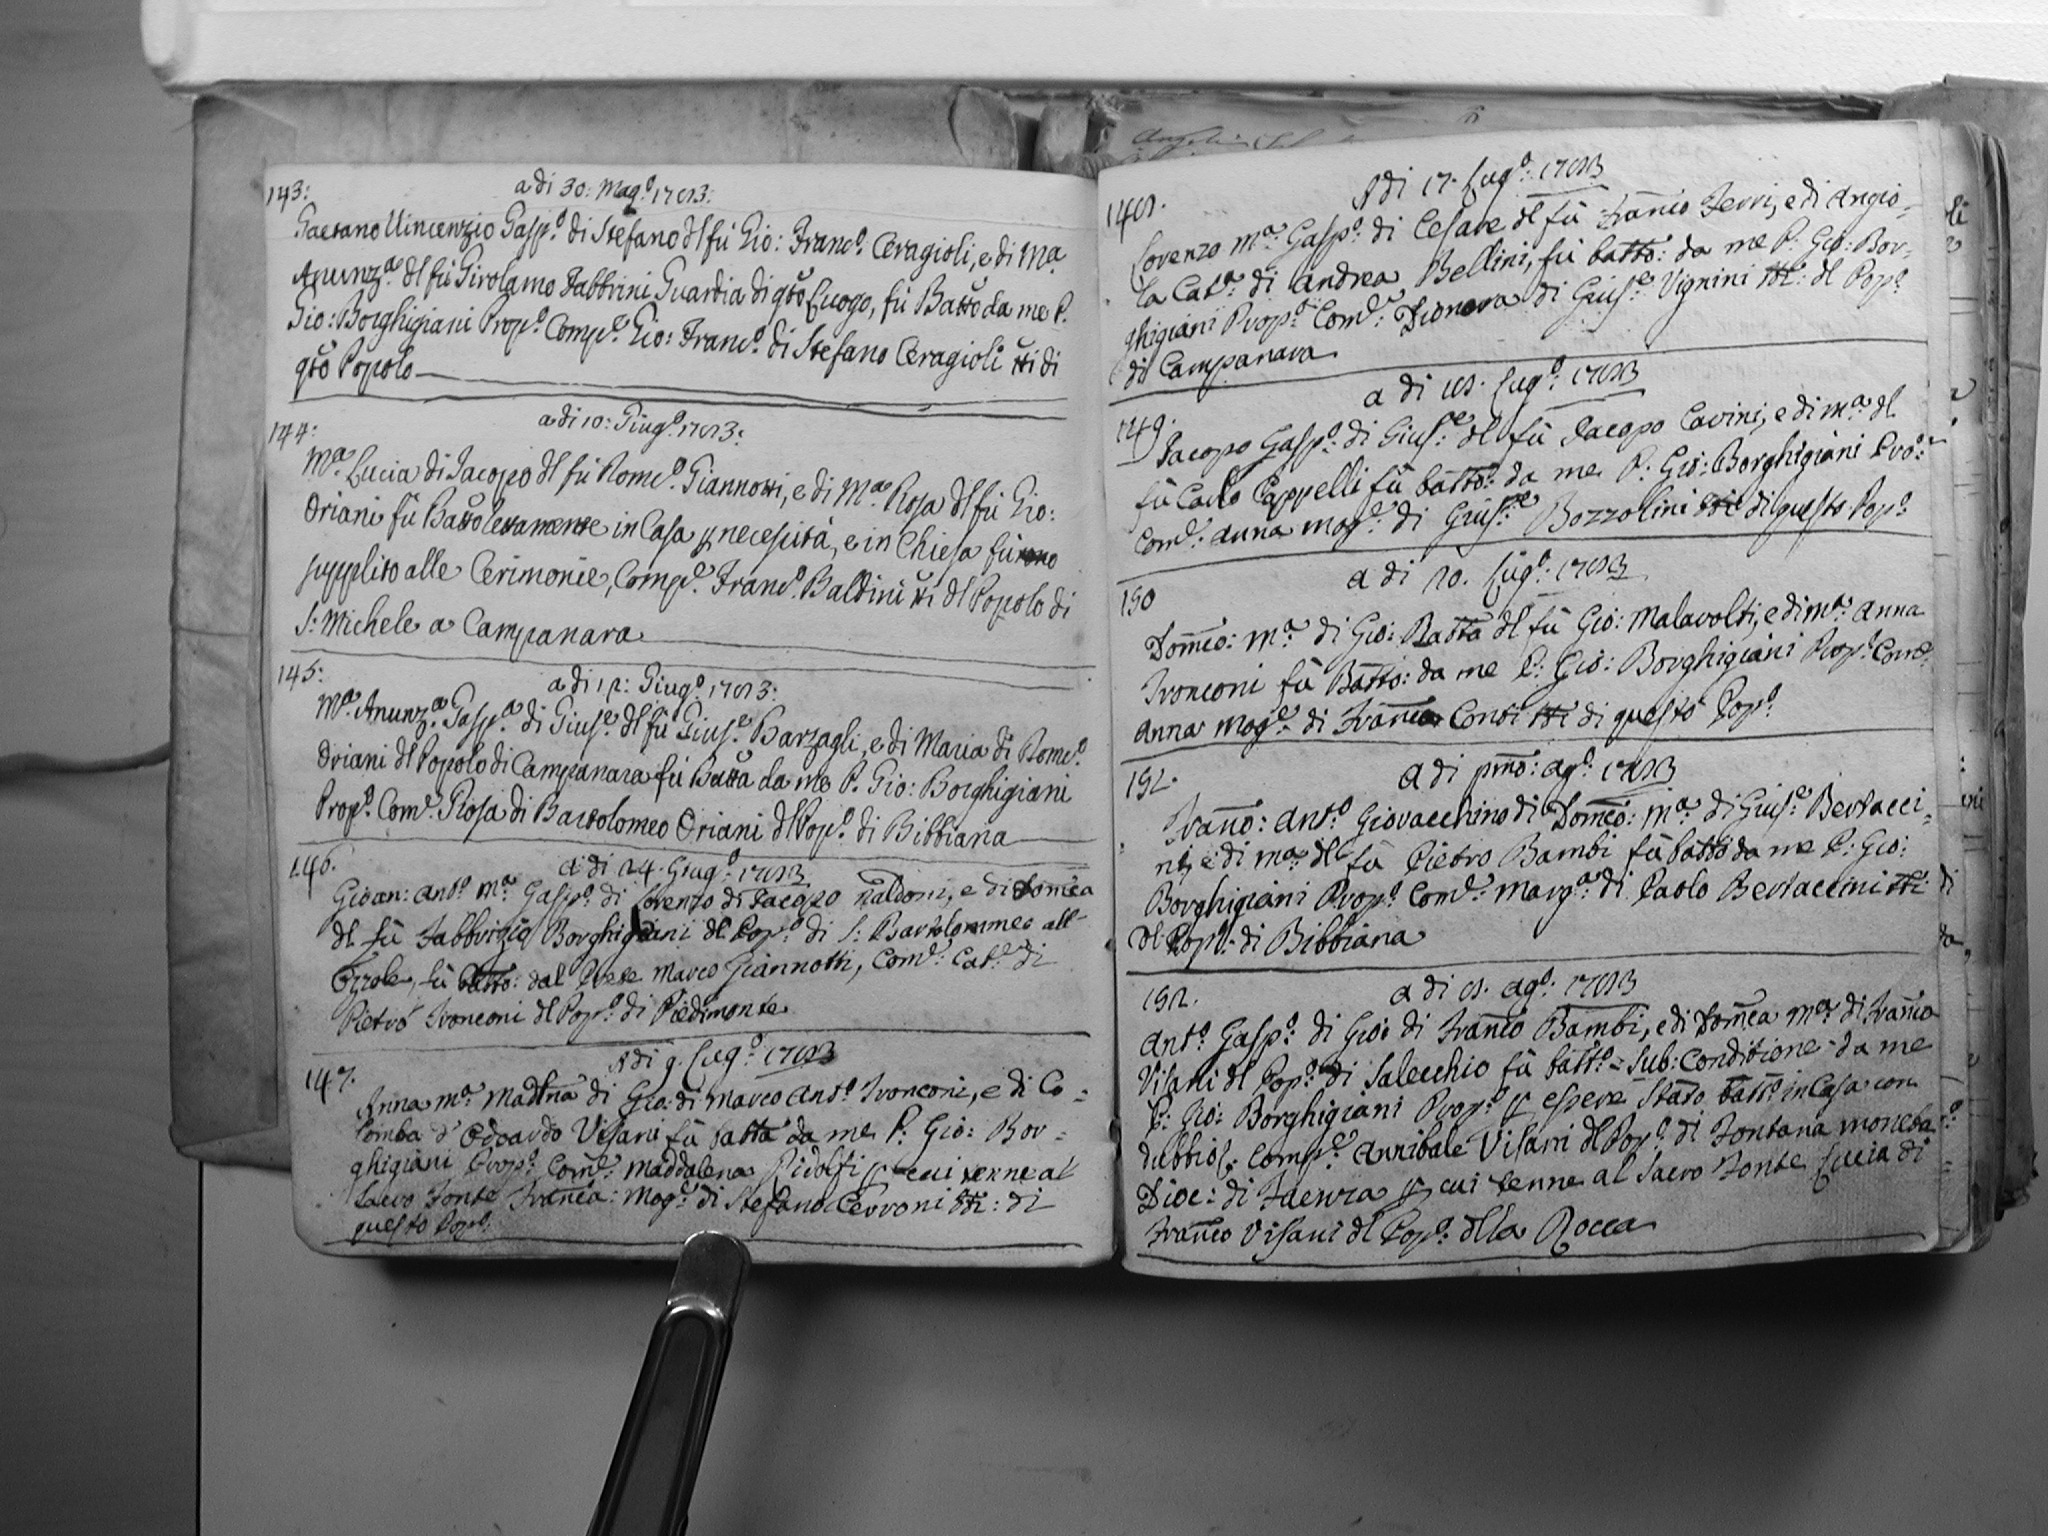 143:
a di 30: Mag.º 1783:
Gaetano Vincenzio Gasp.º di Stefano dl fù Gio: Franc.º Ceragioli, e di M.ª
Anunz.ª dl fù Girolamo Fabbrini Guardia di qto Luogo, fù Batto da me P.
Gio: Borghigiani Prop.º Comp.e Gio: Franc.º di Stefano Ceragioli tti di
qto Popolo
144:
a di 10: Giug.º 1783:
M.ª Lucia di Jacopo dl fù Rom.º Giannotti, e di M.ª Rosa dl fù Gio:
Oriani fù Batto in Casa p necessità, e in Chiesa fù
supplito alle Cerimonie, Comp.e Franc.º Baldini tti dl Popolo di
S: Michele a Campanara
145:
a di 12: Giug.º 1783:
M.ª Anunz.ª Gasp.ª di Gius.e dl fù Gius.e Barzagli, e di Maria di Rom.º
Oriani dl Popolo di Campanara fù Batta da me P. Gio: Borghigiani
Prop.º Com.e Rosa di Bartolomeo Oriani dl Pop.º di Bibbiana
146.
a di 24. Giug.º 1783
Gioan: Ant.º M.ª Gasp.º di Lorenzo di Jacopo Naldoni, e di Domca
dl fù Fabbrizio Borghigiani dl Pop.º di S: Bartolommeo all
fù batto: dal Prete Marco Giannotti, Com.e: Cat.ª di
Pietro Tronconi dl Pop.º di Piedimonte
147.
A di 9. Lug.º 1783
Anna M.ª Madlna di Gio: di Marco Ant.º Tronconi, e di Co=
lomba d' Odoardo Visani fù batta da me P. Gio: Bor=
ghigiani Prop.º Com.e Maddalena Ridolfi p cui tenne al
Sacro Fonte Franca: Mog.e di Stefano Cerroni tti: di
questo Pop.º
148.
A di 17. Lug.º: 1783
Lorenzo M.ª: Gasp.º di Cesare dl fù Franco Ferri, e di Angio=
la Cat.ª di Andrea Bellini, fù batto: da me P: Gio: Bor=
ghigiani Prop.º Com.e: Dionora di Gius.e Vignini tti: dl Pop.º
di Campanara
149.
a di 18. Lug.º: 1783
Jacopo Gasp.º: di Gius.e dl fù Jacopo Cavini, e di M.ª dl
fù Carlo Cappelli fù batto: da me P: Gio: Borghigiani Pro.º:
Com.e: Anna Mog.e di Gius.e Bozzolini tti di questo Pop.º
150
a di 20. Lug.º: 1783
Domco: M.ª di Gio: Batta dl fù Gio: Malavolti, e di M.ª Anna
Tronconi fù Batto: da me P: Gio: Borghigiani Prop.º Com.e
Anna Mog.e di Franco Conti tti di questo Pop.º
151.
A di pmo: Ag.º 1783
Franco: Ant.º Giovacchino di Domco: M.ª di Gius.e Bertacci=
ni, e di M.ª dl fù Pietro Bambi fù batto da me P: Gio:
Borghigiani Prop.º Com.e: Marg.ª di Paolo Bertaccini tti:
dl Pop.º di Bibbiana
152.
a di 8. Ag.º: 1783
Ant.º Gasp.º di Gio: di Franco Bambi, e di Domca M.ª di Franco
Visani dl Pop.º di Salecchio fù batt.º = Sub: Conditione da me
P: Gio: Borghigiani Prop.º p essere stato batto in Casa con
dubbio; Comp.e Annibale Visani dl Pop.º di Fontana moneta
Dioc: di Faenza p cui tenne al Sacro Fonte Lucia di
Franco Visani dl Pop.º dlla Rocca